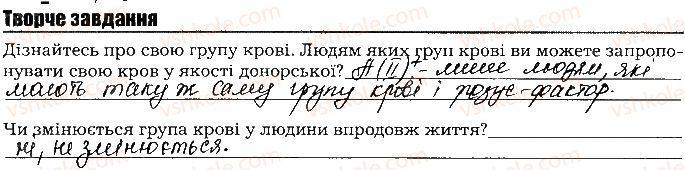 Творче завдання
Дізнайтесь про свою групу крові. Людям яких груп крові ви можете запропо-
нувати свою кров у якості донорської? A(II)+ - лише людям, які
мають таку ж саму групу крові і резус-фактор.
Чи змінюється група крові у людини впродовж життя?
ні, не змінюється.